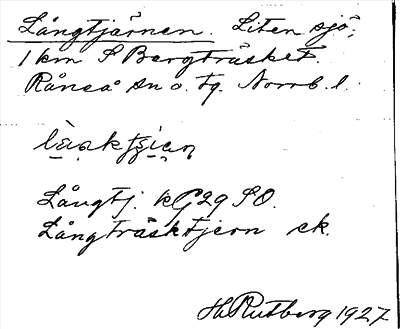 Långtjärnen. Liten sjö,
1 km S Bergträsket.
Råneå sn o. tg. Norrb. l.
Långtj. kG29 SO.
Långträsktjern ek.
H. Rutberg 1927